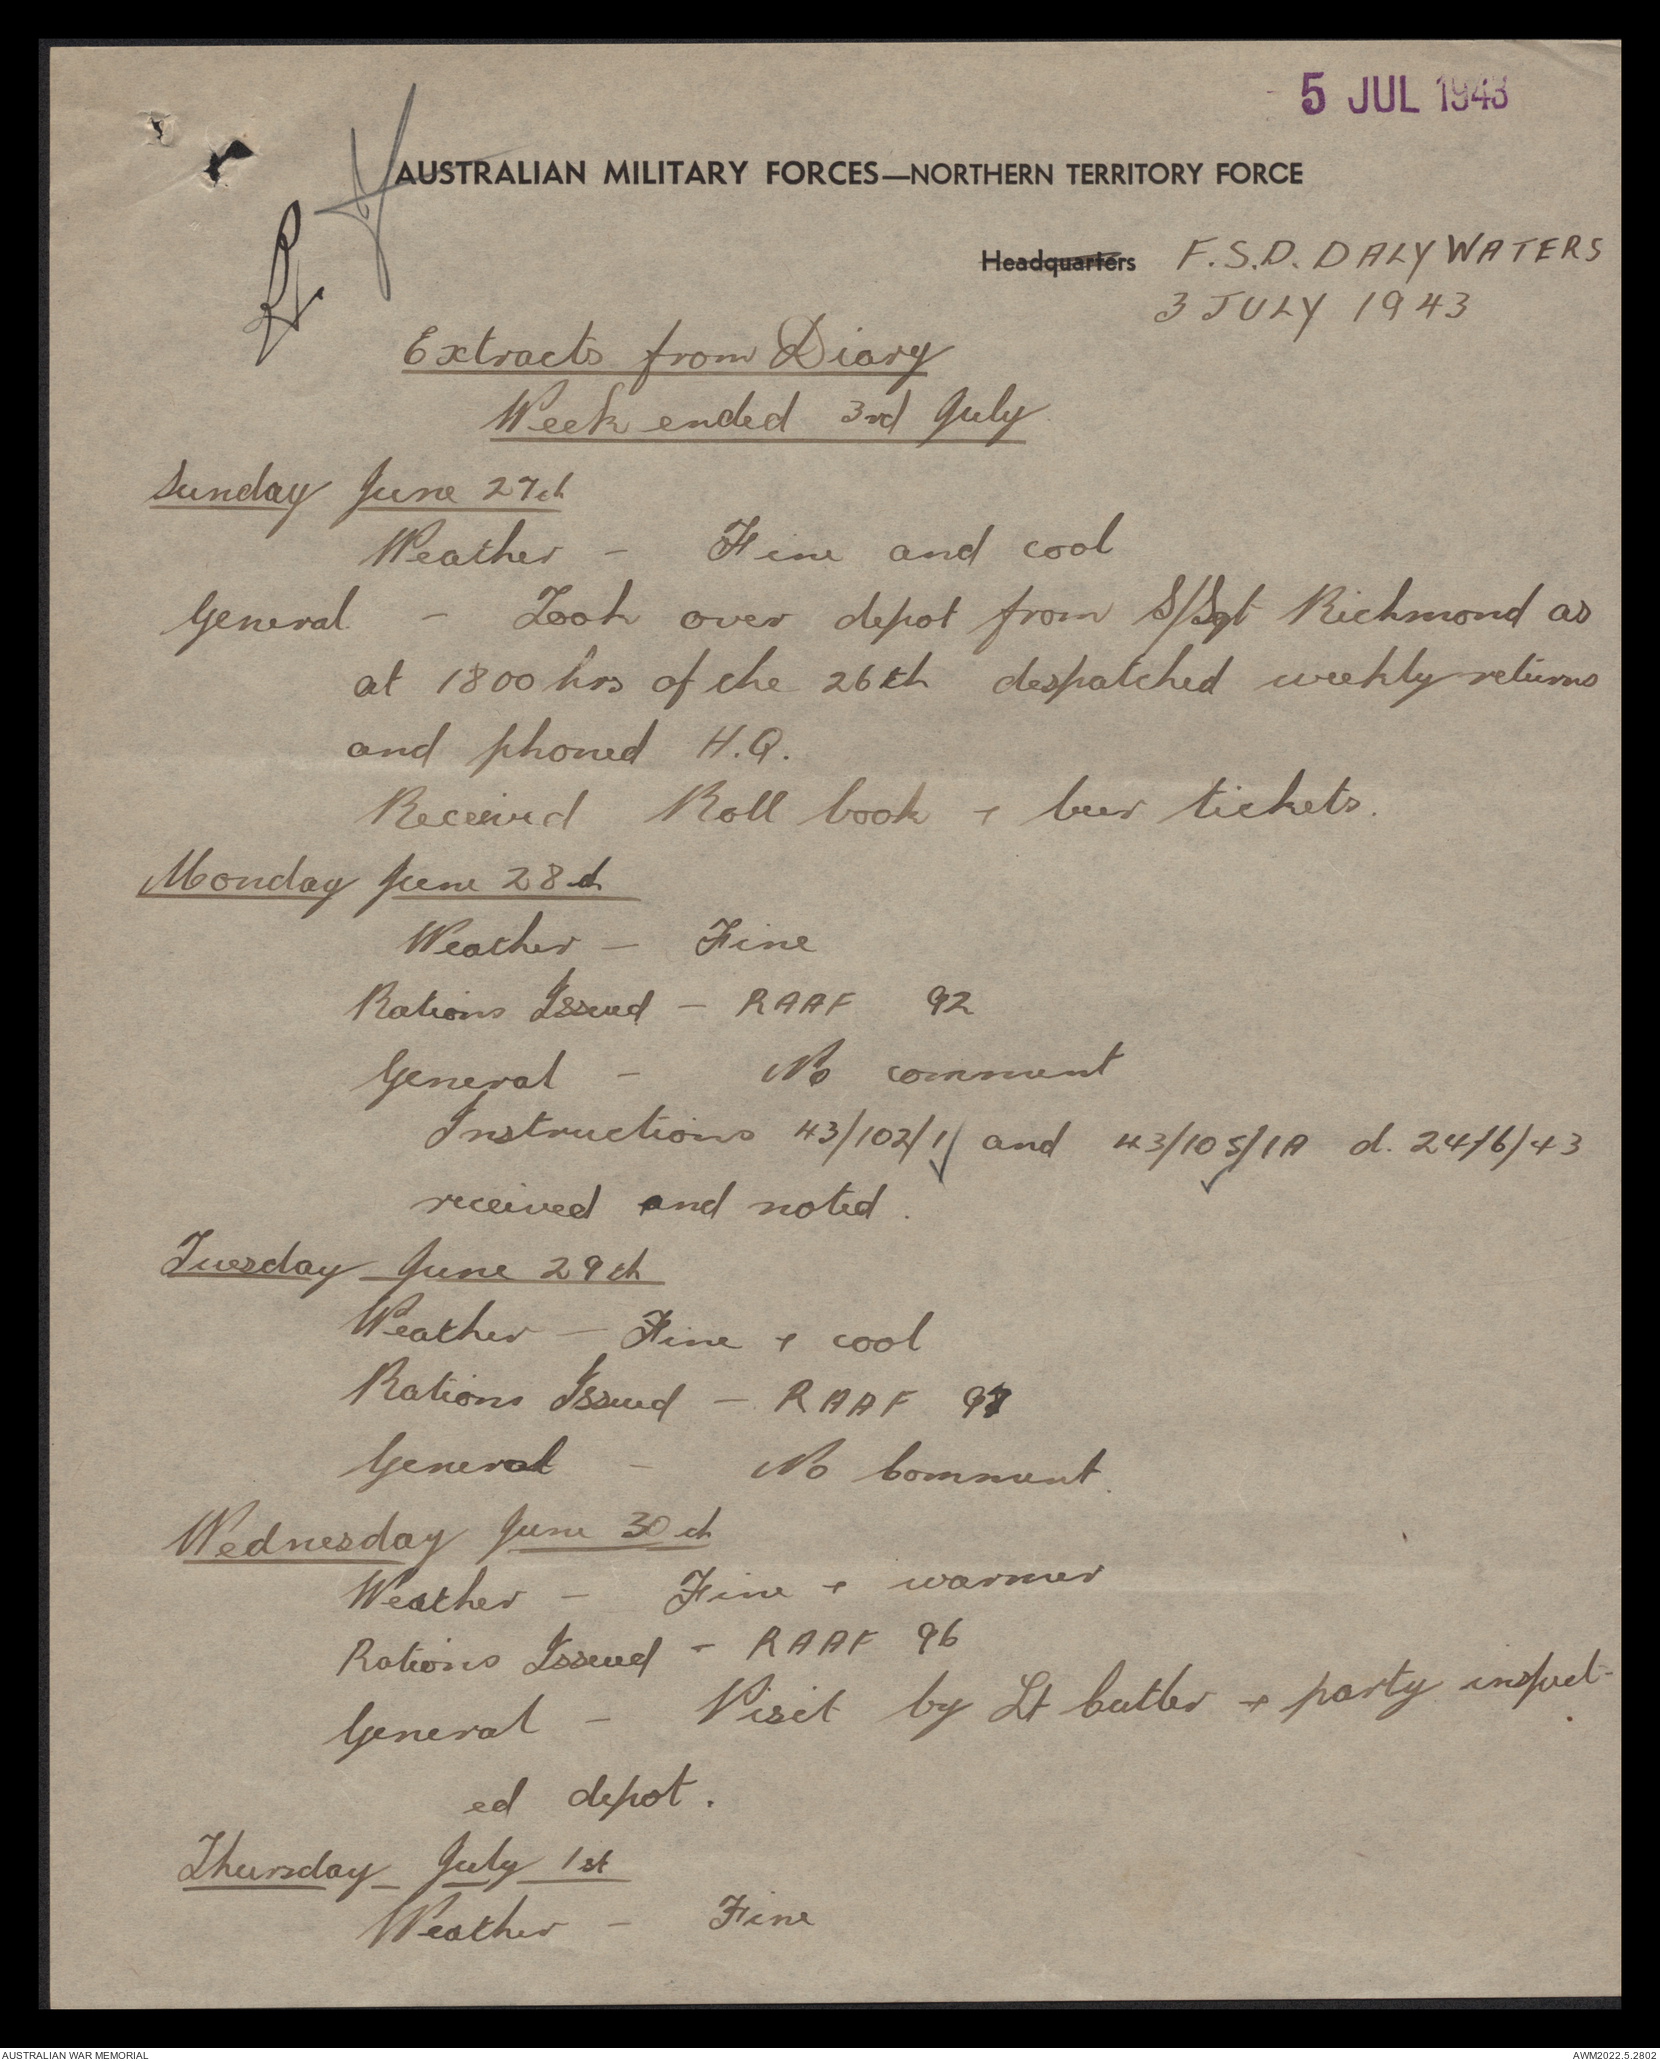 5 JUL 1943
AUSTRALIAN MILITARY FORCES—NORTHERN TERRITORY FORCE
Headquarters F.S.D. DALY WATERS
3 JULY 1943
Extracts from Diary
Week ended 3rd July
Sunday June 27th
Weather - Fine and cool
General - Took over depot from S/Sgt Richmond as
at 1800 hrs of the 26th despatched weekly returns
and phoned H.Q.
Received Roll book + beer tickets.
Monday June 28th
Weather - Fine
Rations Issued - RAAF 92
General - No comment
Instructions 43/102/1 and 43/105/1A d. 24/6/43
received and noted.
Tuesday June 29th
Weather - Fine + cool
Rations Issued - RAAF 97
General - No Comment.
Wednesday June 30th
Weather - Fine + warmer
Rations Issued - RAAF 96
General - Visit by Lt Cutler + party inspect-
ed depot.
Thursday July 1st
Weather - Fine
AUSTRALIAN WAR MEMORIAL
AWM2022.5.2802